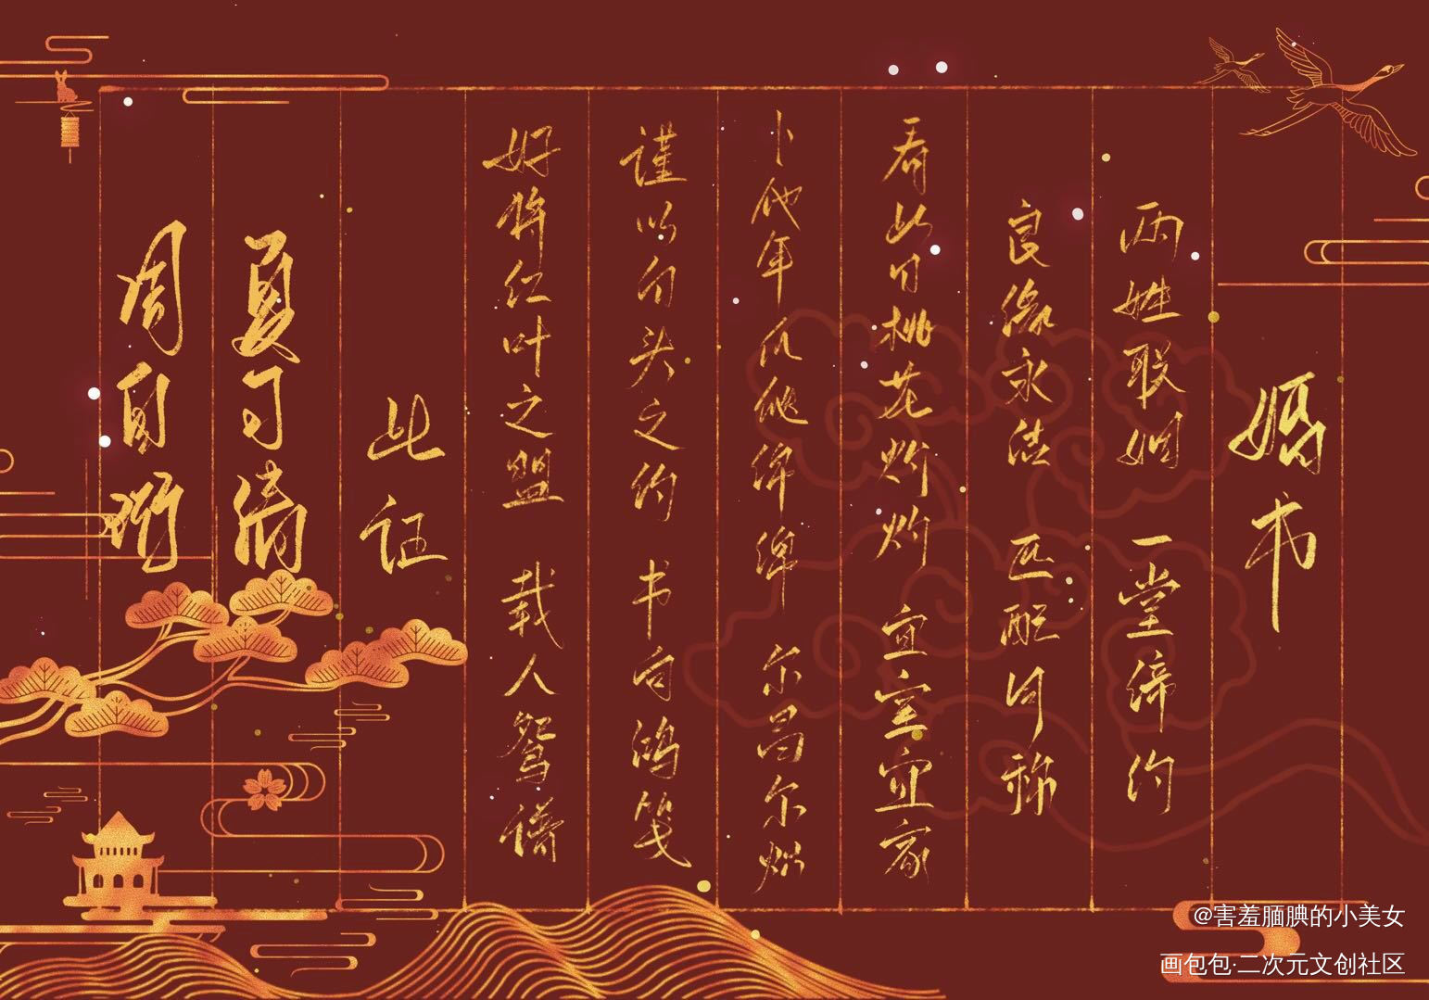 婚书
两姓联姻 一堂缔约
良缘永结 匹配同称
看此日桃花灼灼 宜室宜家
卜他年瓜瓞绵绵 尔昌尔炽
谨以白头之约 书向鸿笺
好将红叶之盟 载入鸳谱
此证
夏习清
周自珩
@害羞腼腆的小美女
画包包·二次元文创社区